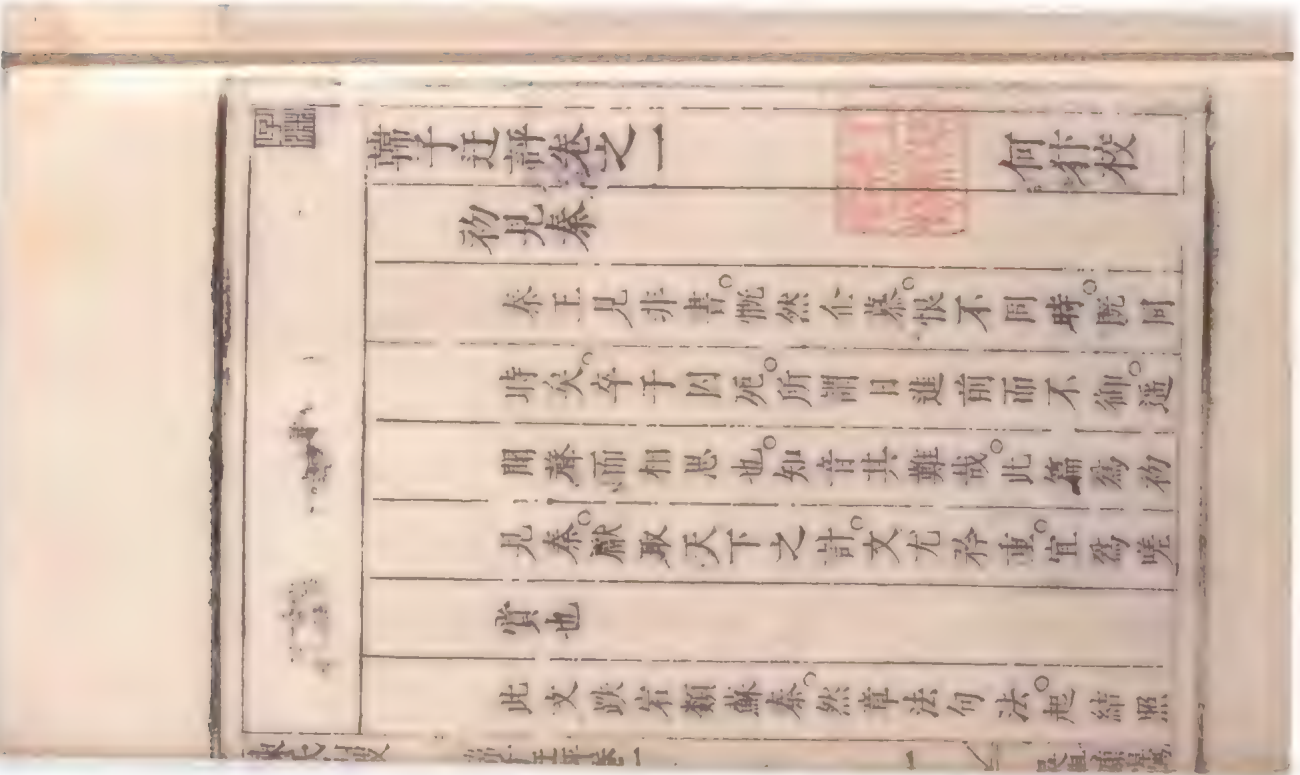 韓子迂評卷之一　何犿校
初見秦
秦王見非書。慨然企慕。恨不同時。既同
時矣。卒于囚死。所謂日進前而不御。遥
聞聲而相思也。知音其難哉。此篇爲初
見秦。獻取天下之計。文尤矜重。宜爲嗟
賞也
此文跌宕類蘇秦。然章法句法。起結照